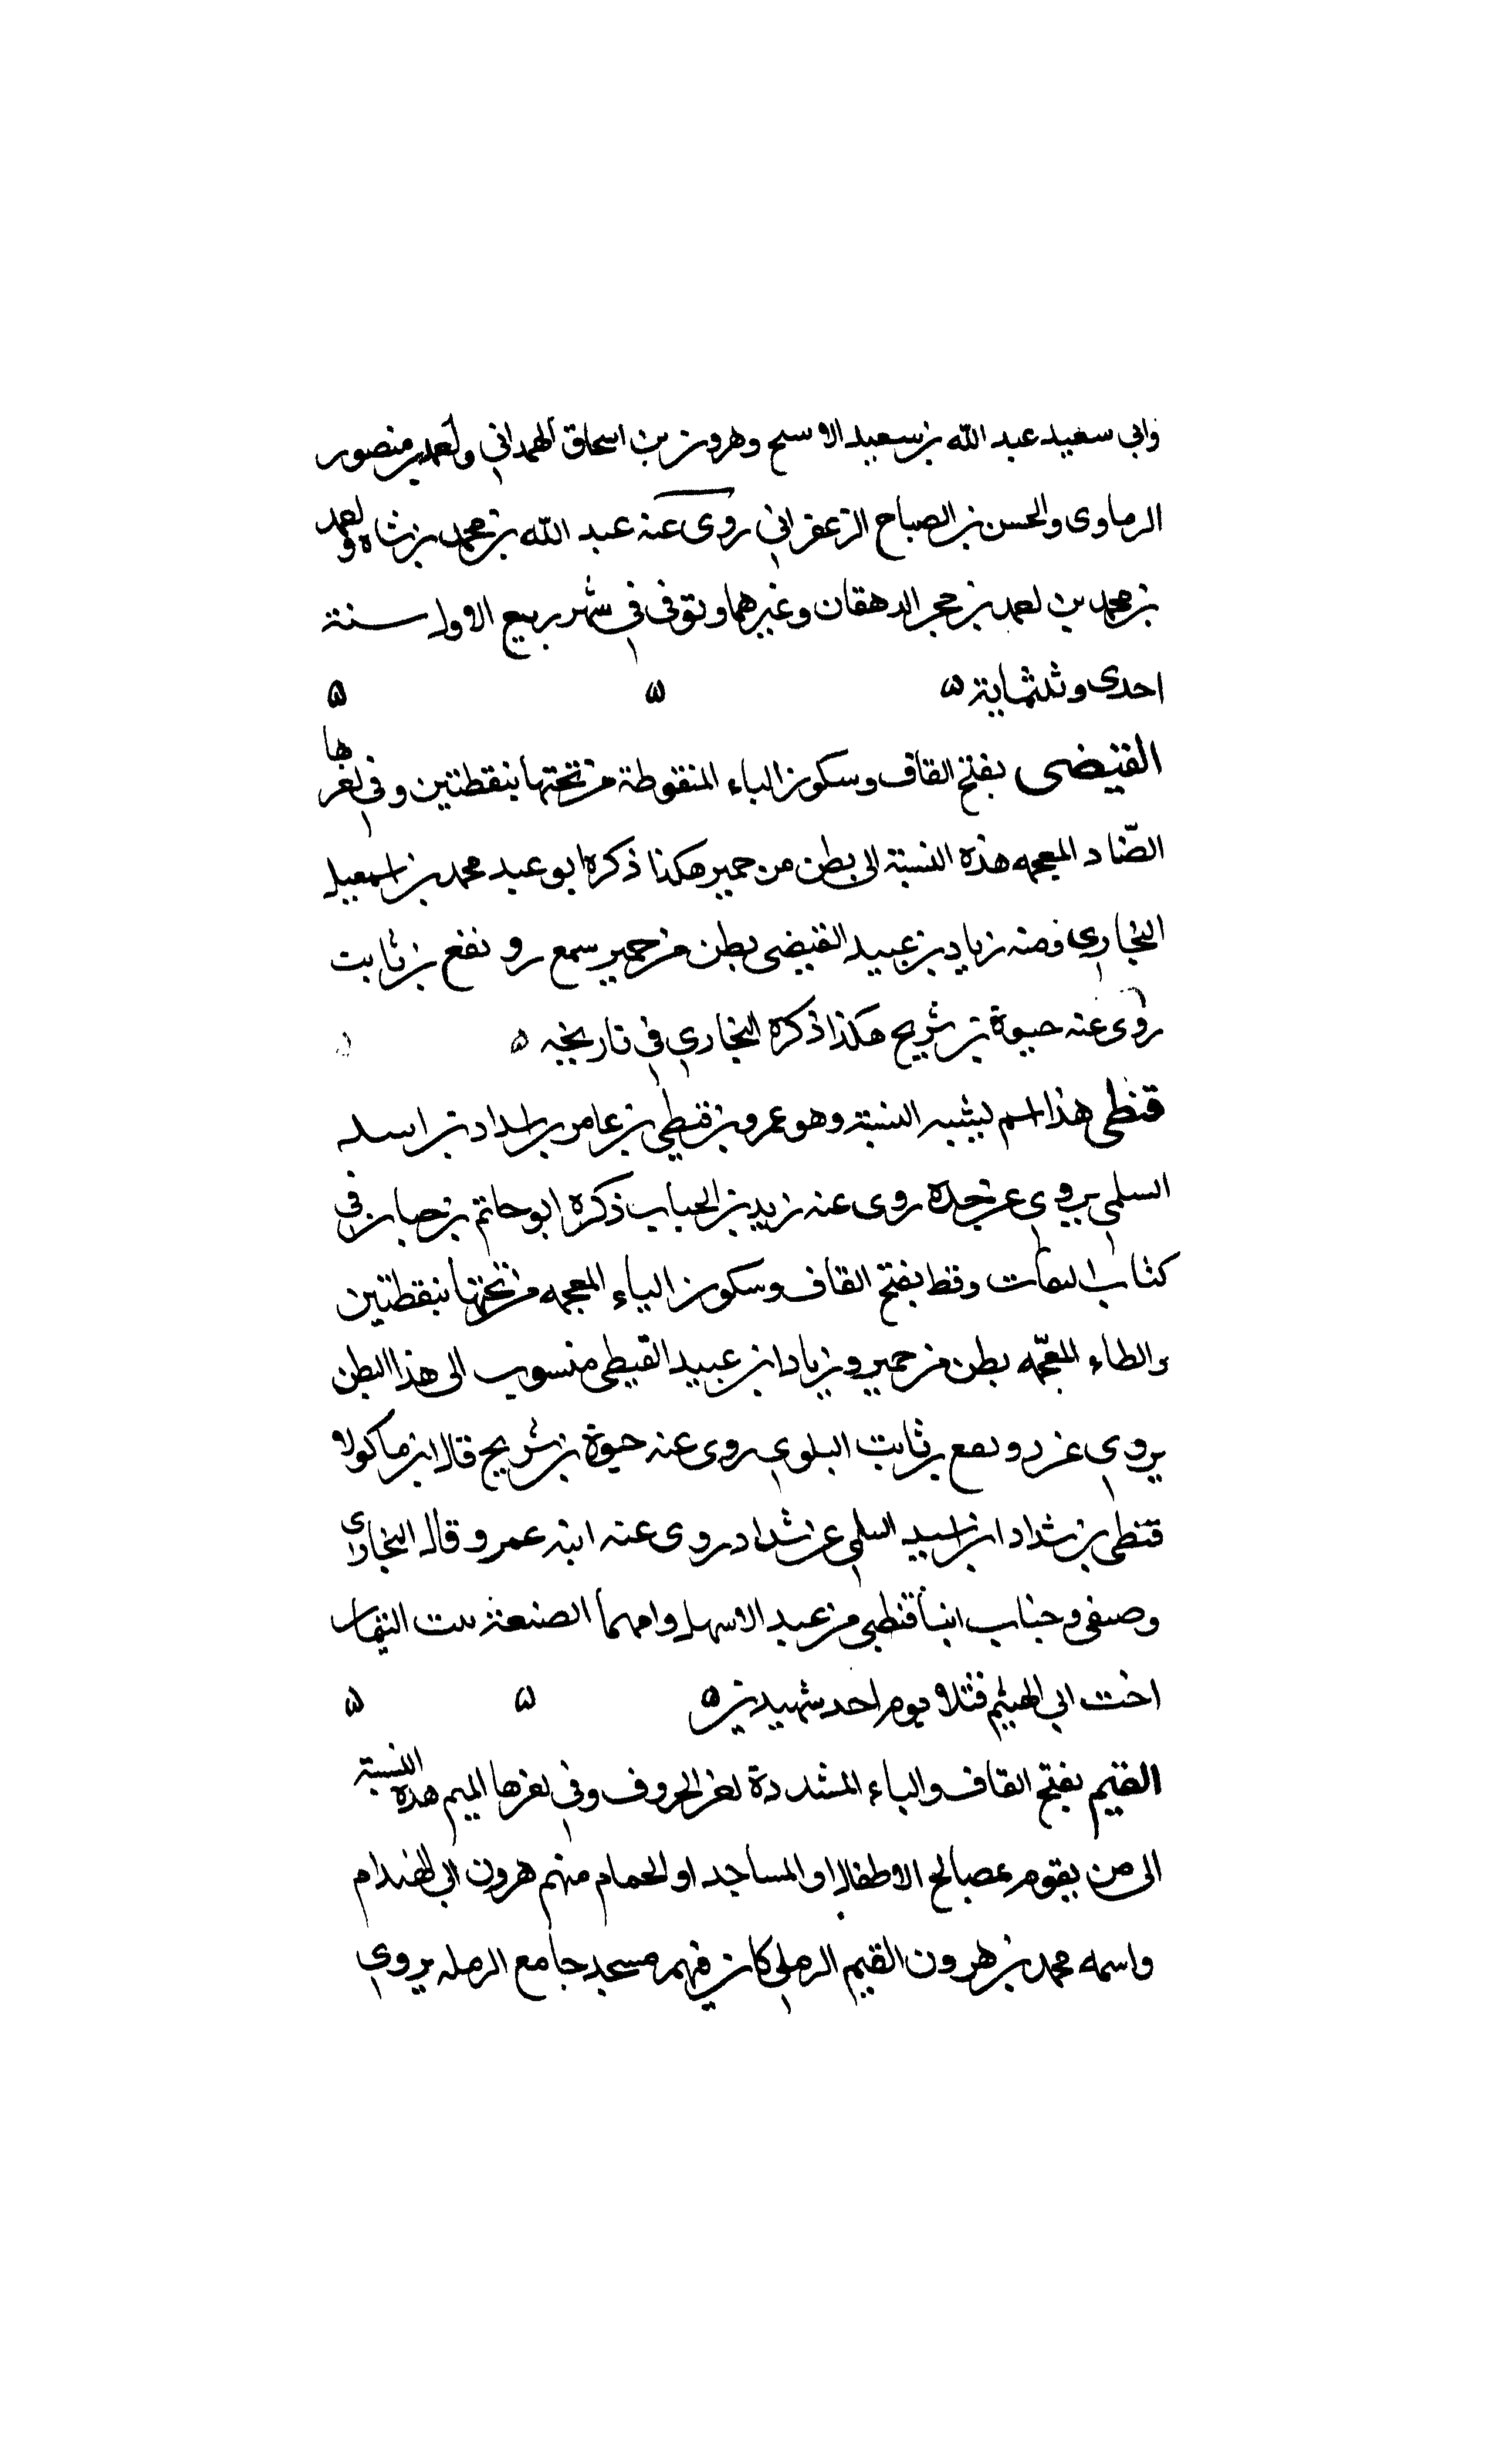 وابي سعيد عبد الله بن سعيد الاسح وهرون بن اسحاق الهمداني واحمد بن منصور
الرماوى والحسن بن الصباح الزعفراني روى عنه عبد الله بن محمد بن شاه واحمد
بن محمد بن احمد بن حجر الدهقان وغيرهما وتوفى في شهر ربيع الاول سنة
احدى وثلثماية ه ه ه
القيضى بفتح القاف وسكون الياء المنقوطة من تحتها بنقطتين وفي اخرها
الضّاد المعجمه هذه النسبة الى بطن من حمير هكذا ذكره ابو عبد محمد بن اسمعيل
البخاري زياد بن عبيد القيضى بطن من حمير سمع رويفع بن ثابت
روى عنه حيوة بن شريح هكذا ذكره البخاري في تاريخه ه
قيظى هذا اسم يشبه النسبة وهو عمرو بن قيظي بن عامر بن شداد بن اسيد
السلمي يروي عن جده روى عنه زيد بن الحباب ذكره ابو حاتم بن حبان في
كتاب الثقات وقيظ بفتح القاف وسكون الياء المعجمه من تحتها بنقطتين
والظاء المعجّمه بطن من حمير وزياد ابن عبيد القيظى منسوب الى هذا البطن
يروي عن رويفع بن ثابت البلوي روى عنه حيوة بن شريح قال ابن ماكولا
قيظى بن شداد ابن اسيد السلمي عن شداد روى عنه ابنه عمرو قال البخارى
وصيفى وحباب ابنا قيظي من عبد الاسهل وامهما الصعبة بنت التيهان
اخت ابي الهيثم قتلا يوم احد شهيدين ه ه ه
القيم بفتح القاف والياء المشددة اخر الحروف وفي اخرها الميم هذه النسبة
الى من يقوم بمصالح الاطفال او المساجد او الحمام منهم هرون ابي
واسمه محمد بن هرون القيم الرملي كان مسجد جامع الرمله يروي